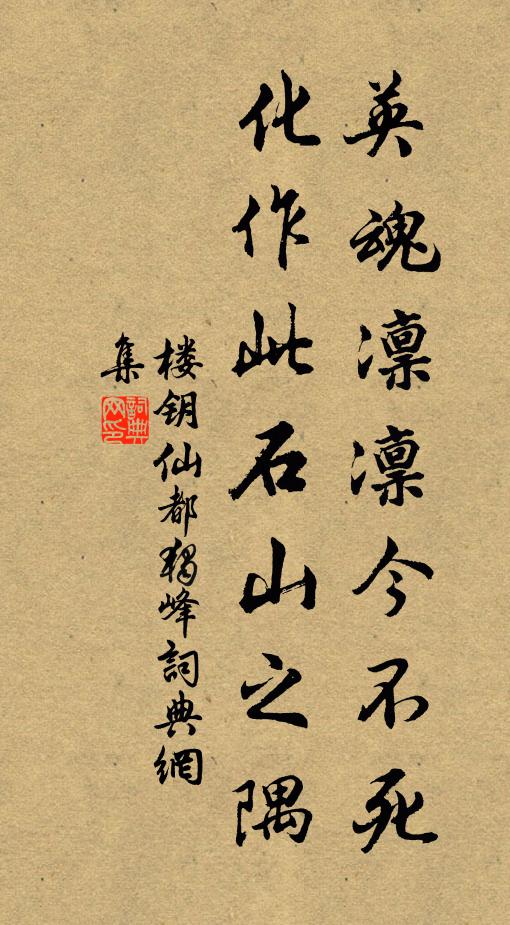 英魂凛凛今不死
化作此石山之隅
楼钥仙都独峰詞典網
集
詞典网印